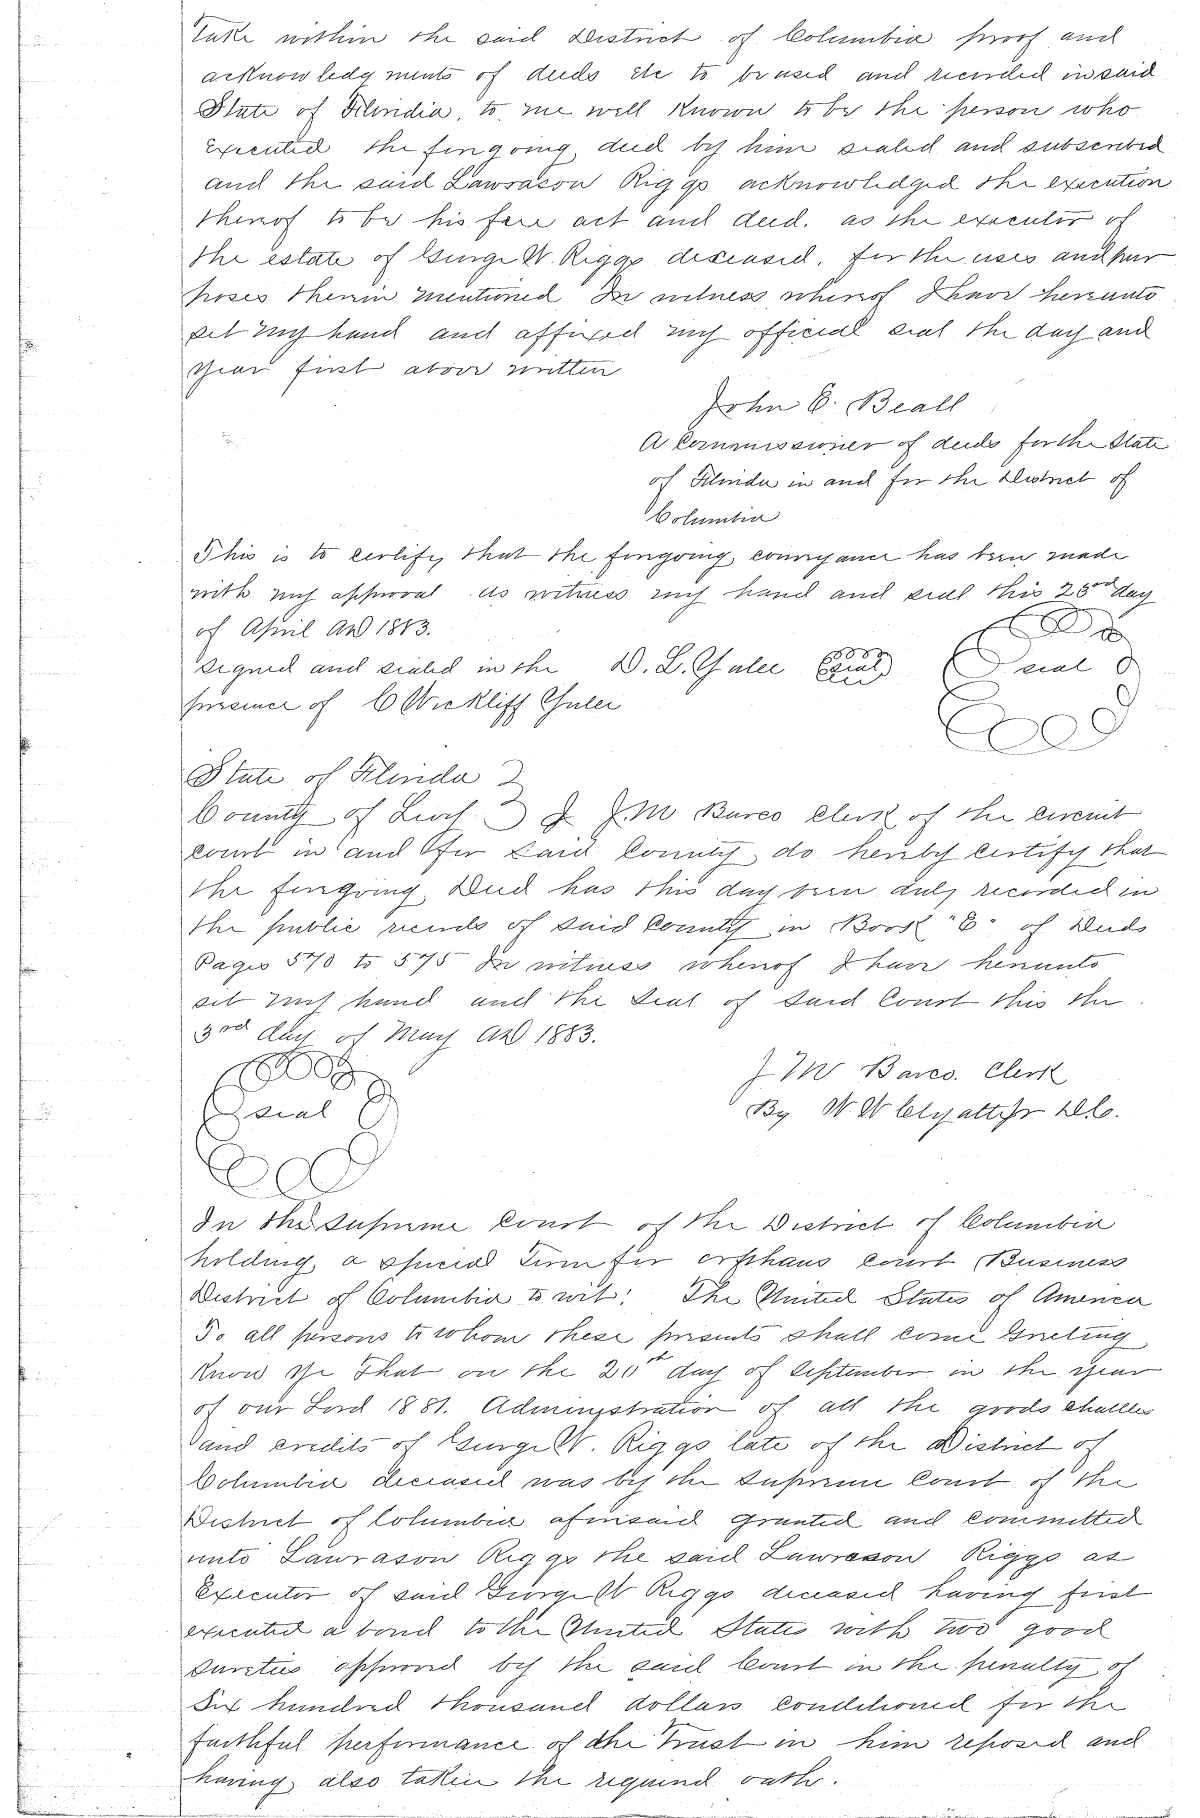 take within the said District of Columbia proof and
acknowledgments of deeds etc to be used and recorded in said
State of Florida, to me well known to be the person who
executed the foregoing deed by him sealed and subscribed
and the said Lawrason Riggs acknowledged the execution
thereof to be his free act and deed. as the executor of
the estate of George W. Riggs deceased, for the uses and pur
poses therein mentioned In witness whereof I have hereunto
set my hand and affixed my official seal the day and
year first above written
John E. Beall
A Commissioner of deeds for the State
of Florida in and for the District of
Columbia
This is to certify that the foregoing conveyance has been made
with my approval as witness my hand and seal this 23rd day
of April AD 1883.
Signed and sealed in the D. L. Yulee Seal seal
presence of C Wickliff Yulee
State of Florida
County of Levy I J. M Barco Clerk of the circuit
court in and for said County do hereby certify that
the foregoing Deed has this day been duly recorded in
the public records of said County in Book "E" of Deeds
Pages 570 to 575 In witness whereof I have hereunto
set my hand and the Seal of said Court this the
3rd day of May AD 1883.
J M Barco. Clerk
seal By W. W Clyatt Jr D.C.
In the Supreme Court of the District of Columbia
holding a special Term for orphans court Business
District of Columbia to wit: The United States of America
To all persons to whom these presents shall come Greeting
Know ye That on the 20th day of September in the year
of our Lord 1881. Administration of all the goods chattles
and credits of George W. Riggs late of the District of
Columbia deceased was by the Supreme Court of the
District of Columbia aforesaid granted and committed
unto Lawrason Riggs the said Lawrason Riggs as
Executor of said George W Riggs deceased having first
executed a bond to the United States with two good
sureties approved by the said Court in the penalty of
Six hundred thousand dollars conditioned for the
faithful performance of the Trust in him reposed and
having also taken the required oath.